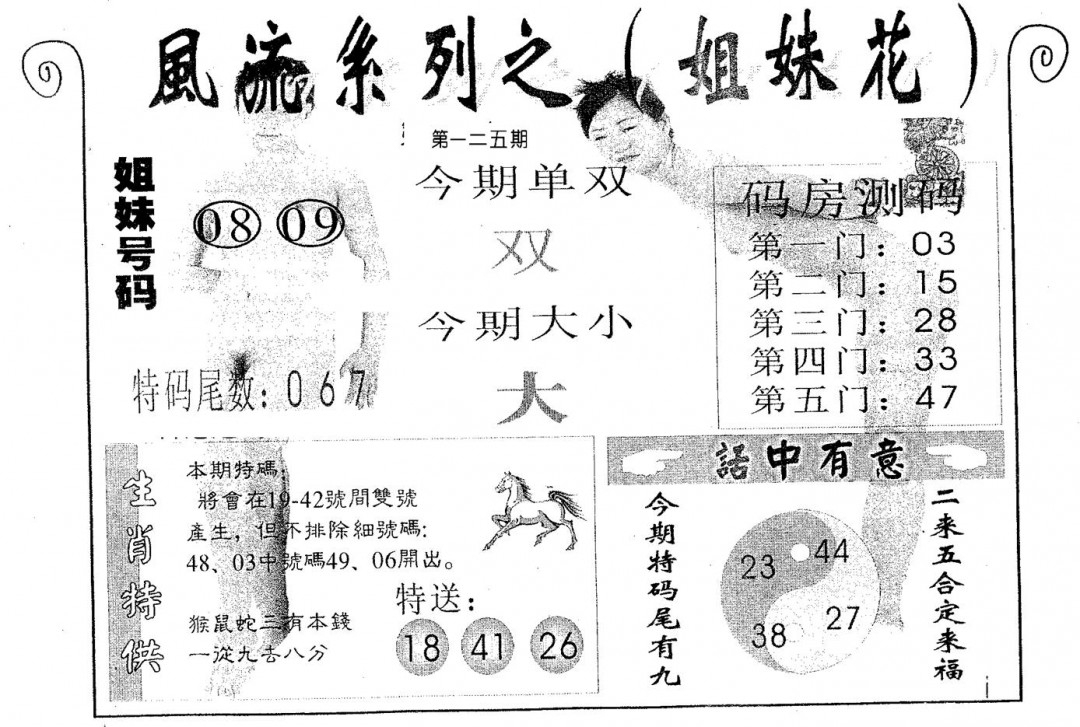 風流系列之（姐妹花）
第一二五期
姐妹号码
08 09
特码尾数：067
今期单双
双
今期大小
大
码房测码
第一门：03
第二门：15
第三门：28
第四门：33
第五门：47
生肖特供
本期特碼：
將會在19-42號間雙號
產生，但不排除細號碼：
48、03中號碼49、06開出。
猴鼠蛇三有本錢
一從九去八分
特送：
18 41 26
話中有意
今期特码尾有九
23 44
38 27
二来五合定来福